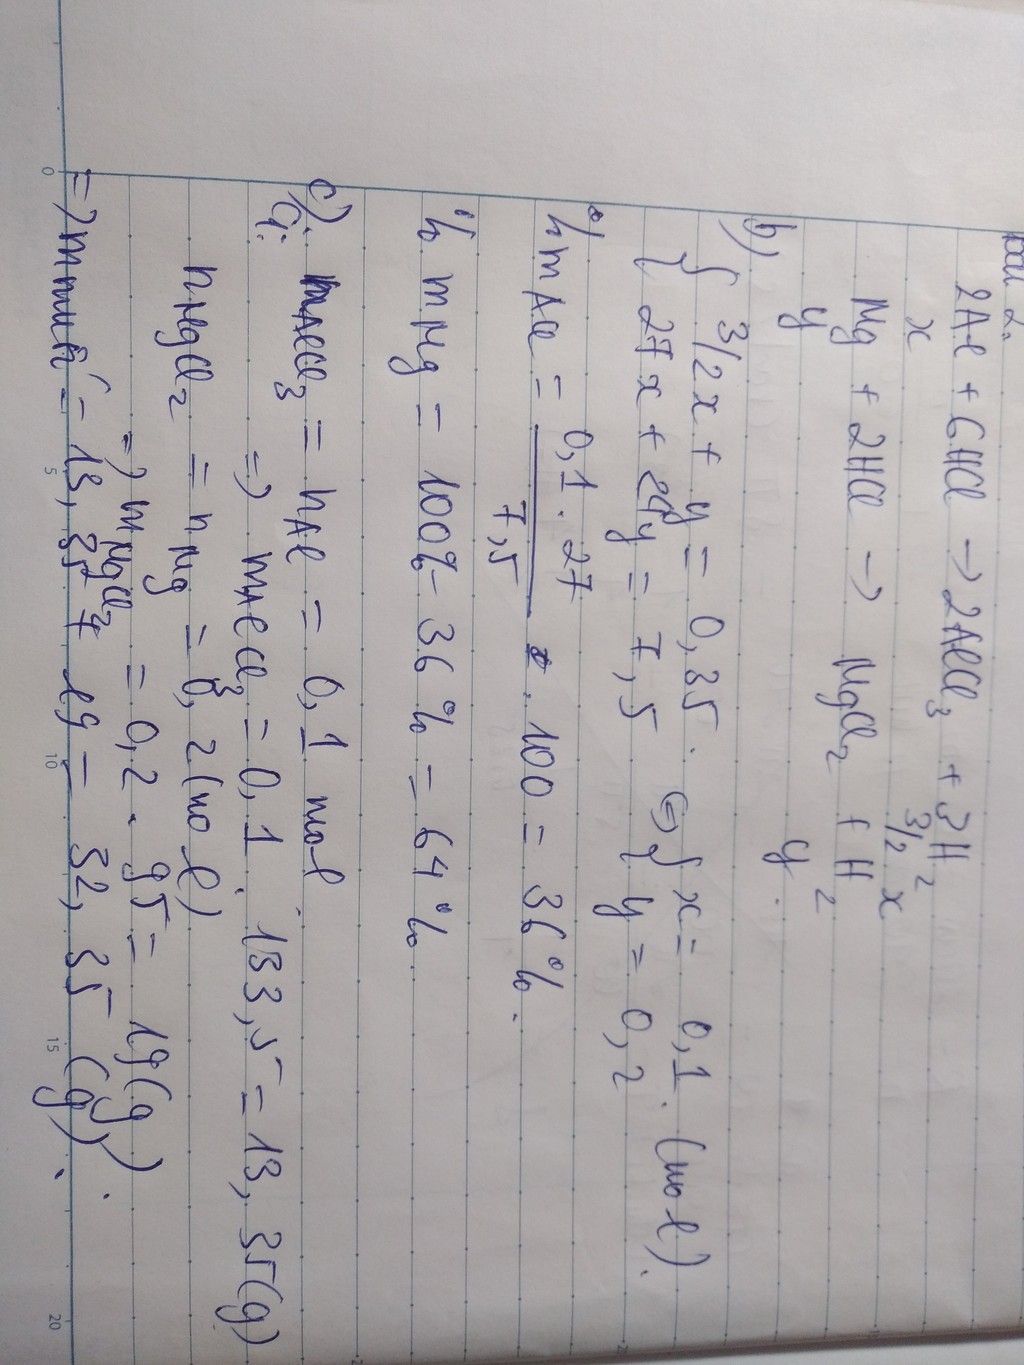 2Al + 6HCl → 2AlCl₃ + 3H₂
x 3/2 x
Mg + 2HCl → MgCl₂ + H₂
y y.
b) { 3/2x + y = 0,35. (=) { x = 0,1. (mol).
{ 27x + 24y = 7,5 { y = 0,2
% mAl = 0,1 . 27 / 7,5 . 100 = 36%.
% mMg = 100% - 36% = 64%.
c). C1: nAlCl₃ = nAl = 0,1 mol
=) mAlCl₃ = 0,1 . 133,5 = 13,35(g)
nMgCl₂ = nMg = 0,2 (mol)
=) mMgCl₂ = 0,2 . 95 = 19(g).
=) m muối = 13,35 + 19 = 32,35 (g).
0 5 10 15 20